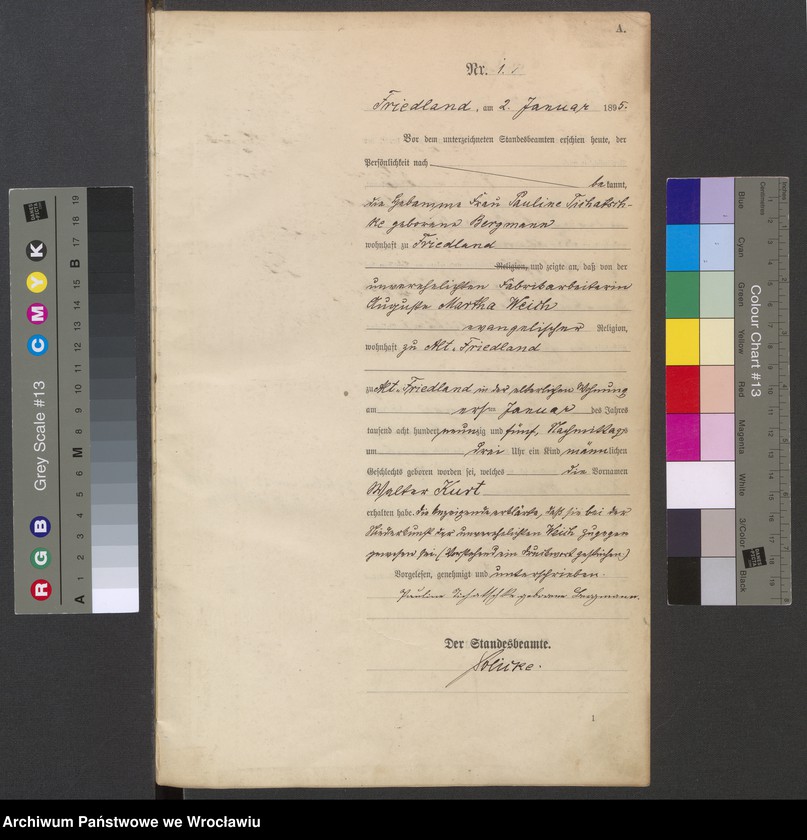 A.
Nr. 1.
Friedland, am 2. Januar 1895.
Vor dem unterzeichneten Standesbeamten erschien heute, der
Persönlichkeit nach
bekannt,
die Hebamme Frau Pauline Tschatsch-
ke geborene Bergmann
wohnhaft zu Friedland
Religion, und zeigte an, daß von der
unverehelichten Fabrikarbeiterin
Auguste Martha Weich
evangelischer Religion,
wohnhaft zu Alt-Friedland
zu Alt-Friedland in der elterlichen Wohnung
am ersten Januar des Jahres
tausend acht hundert neunzig und fünf, Nachmittags
um drei Uhr ein Kind männlichen
Geschlechts geboren worden sei, welches die Vornamen
Walter Kurt
erhalten habe. Die Anzeigende erklärte, daß sie bei der
Niederkunft der unverehelichten Weich zugegen
gewesen sei. (Vorstehend ein Druckwort gestrichen.)
Vorgelesen, genehmigt und unterschrieben.
Pauline Tschatschke geborene Bergmann.
Der Standesbeamte.
1
Grey Scale #13
DANES PICTA
R G B C M Y K
A 1 2 3 4 5 6 M 8 9 10 11 12 13 14 15 B 17 18 19
Colour Chart #13
Blue
Cyan
Green
Yellow
Red
Magenta
White
3/Color
Black
Centimetres
Inches
Archiwum Państwowe we Wrocławiu